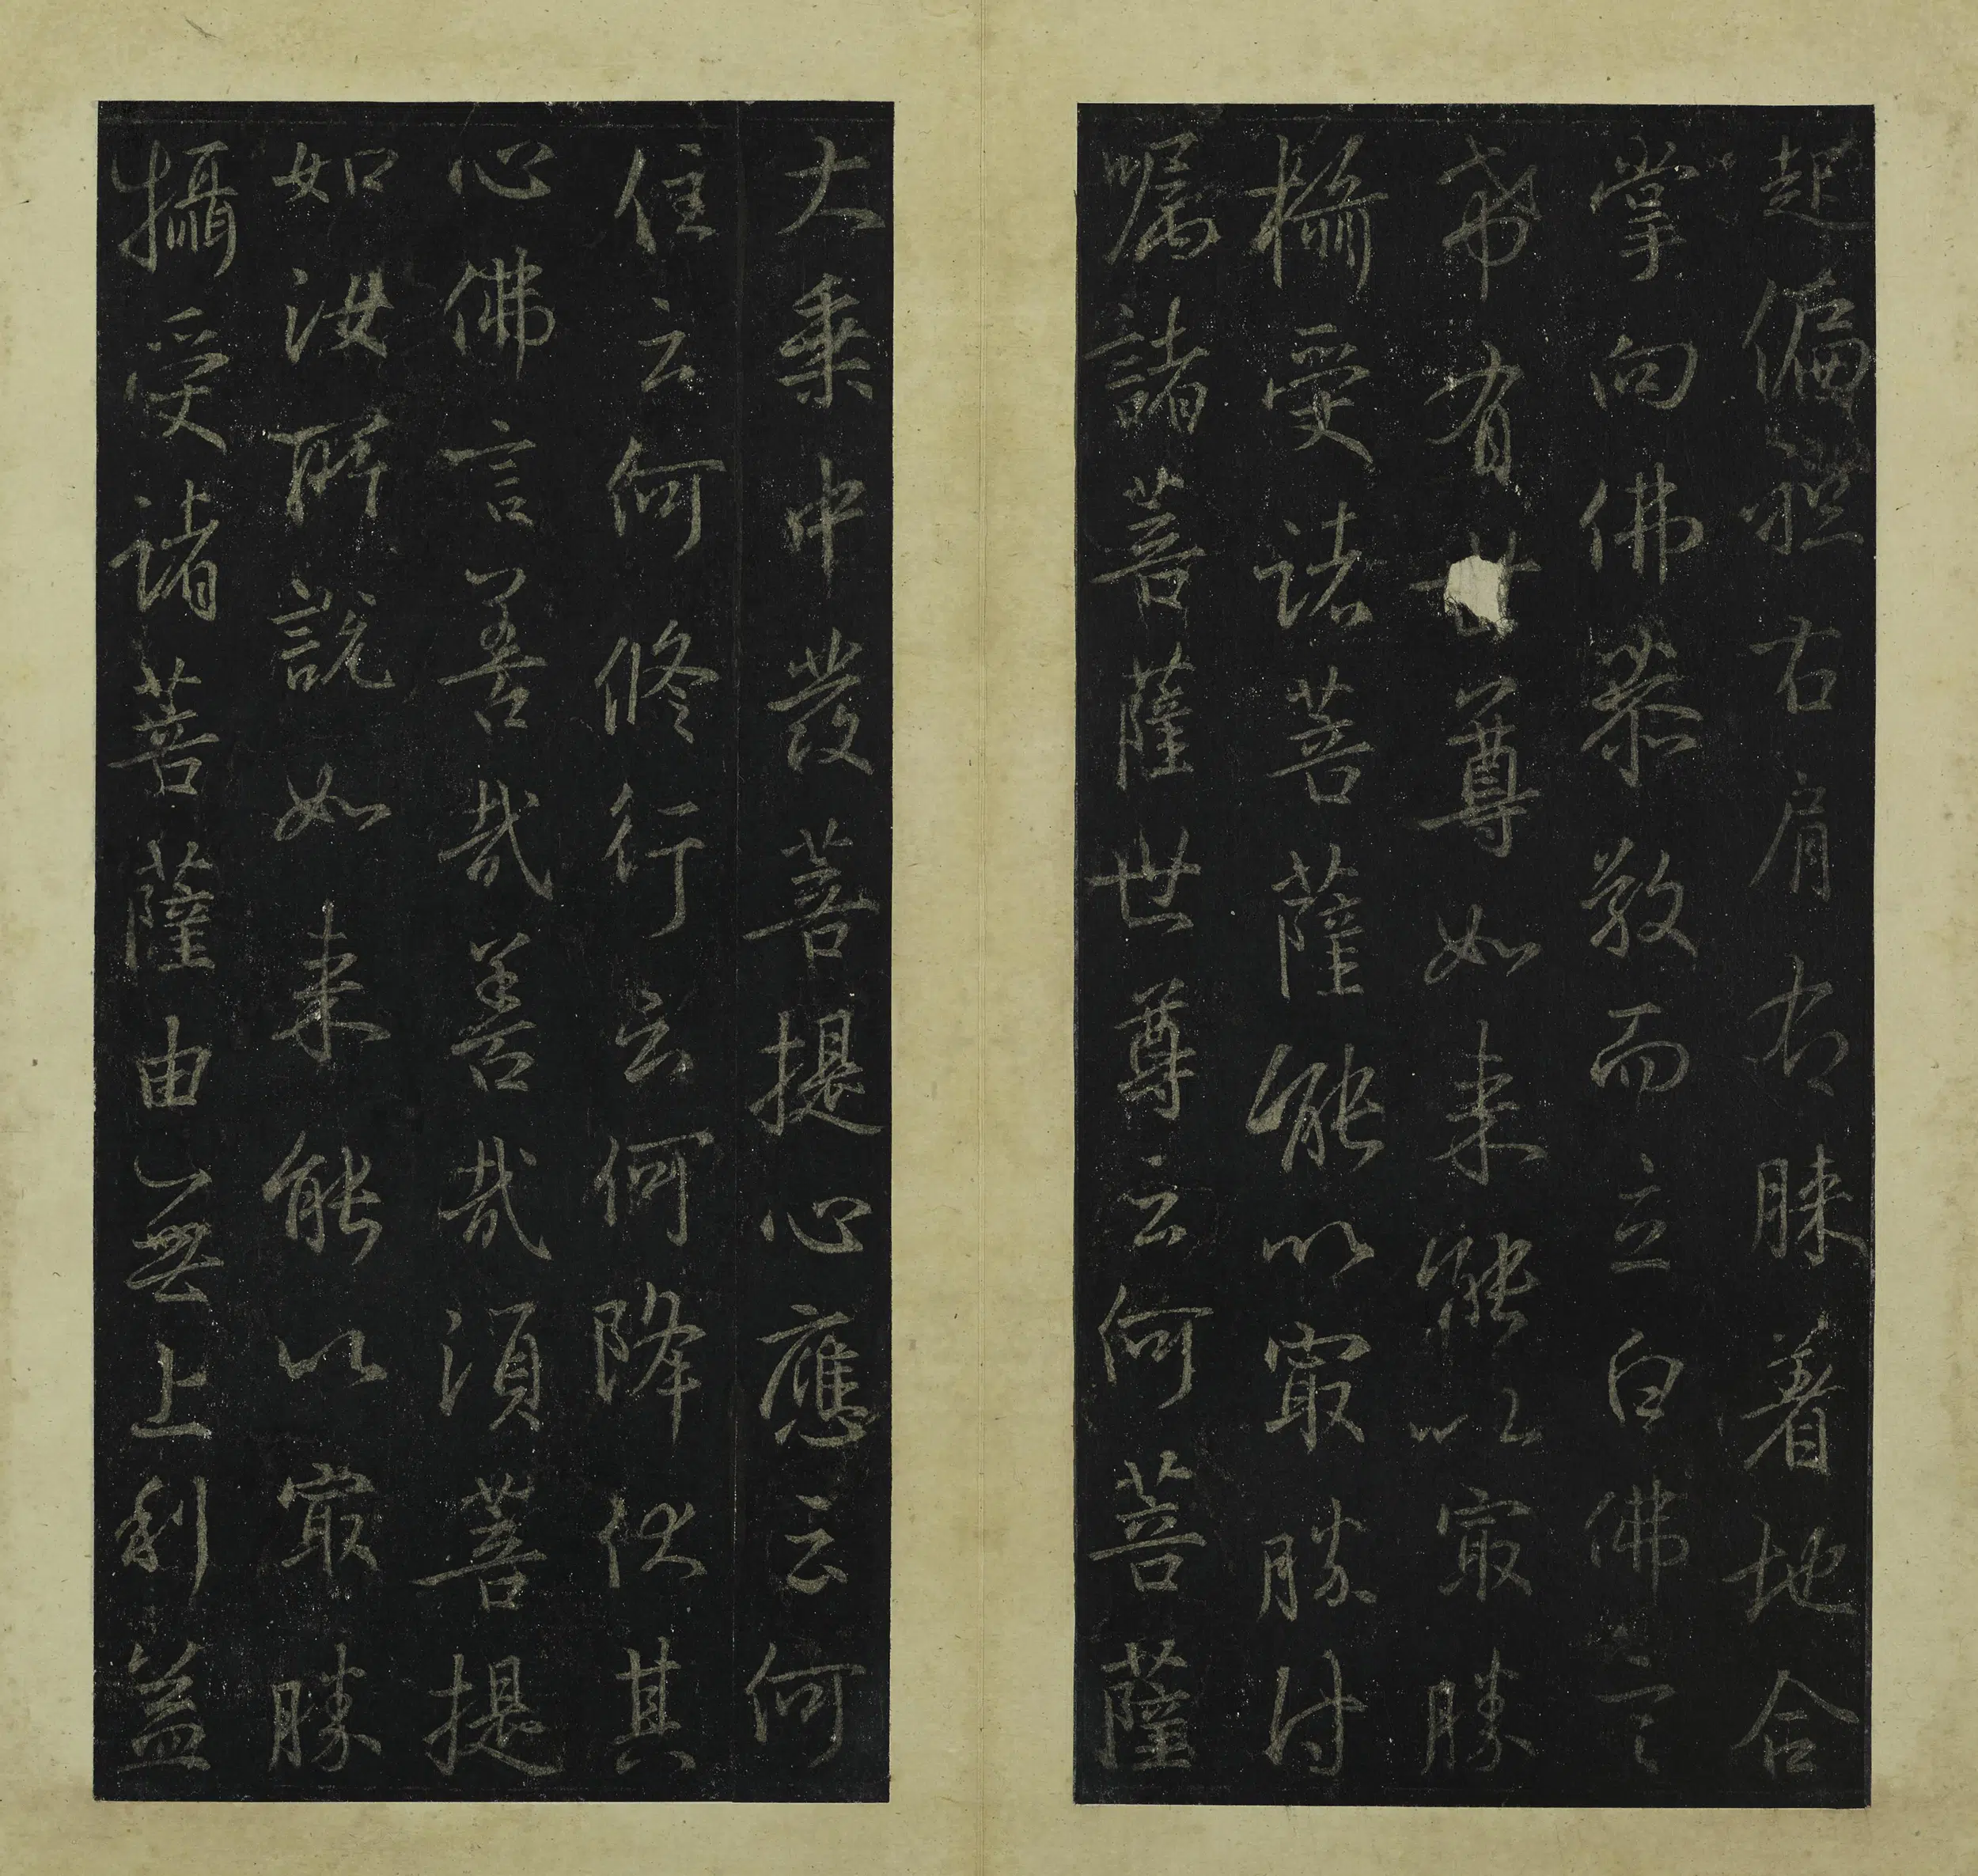 起偏袒右肩右膝著地合
掌向佛恭敬而立白佛言
希有世尊如来能以最勝
攝受諸菩薩能以最勝付
嘱諸菩薩世尊云何菩薩
大乗中發菩提心應云何
住云何修行云何降伏其
心佛言善哉善哉須菩提
如汝所說如来能以最勝
攝受諸菩薩由無上利益